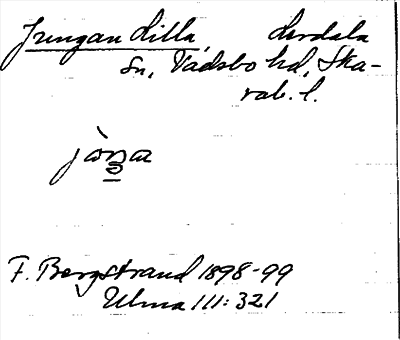 Jungan Lilla, Lerdala
sn, Vadsbo hd, Ska-
rab. l.
F. Bergstrand 1898-99
Ulma 111: 321